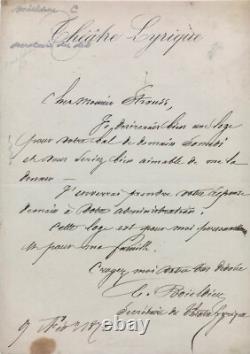 Théâtre Lyrique
Cher Monsieur Strauss,
Je désirerais bien une loge
pour votre bal de demain Samedi
et vous seriez bien aimable de me la
donner —
J'enverrai prendre votre réponse
demain à votre administration.
Cette loge est pour moi personnel
et pour ma famille.
Croyez moi votre très dévoué
Boieldieu
Secrétaire du Théâtre Lyrique
9 Fév
ultimate-autographs.com